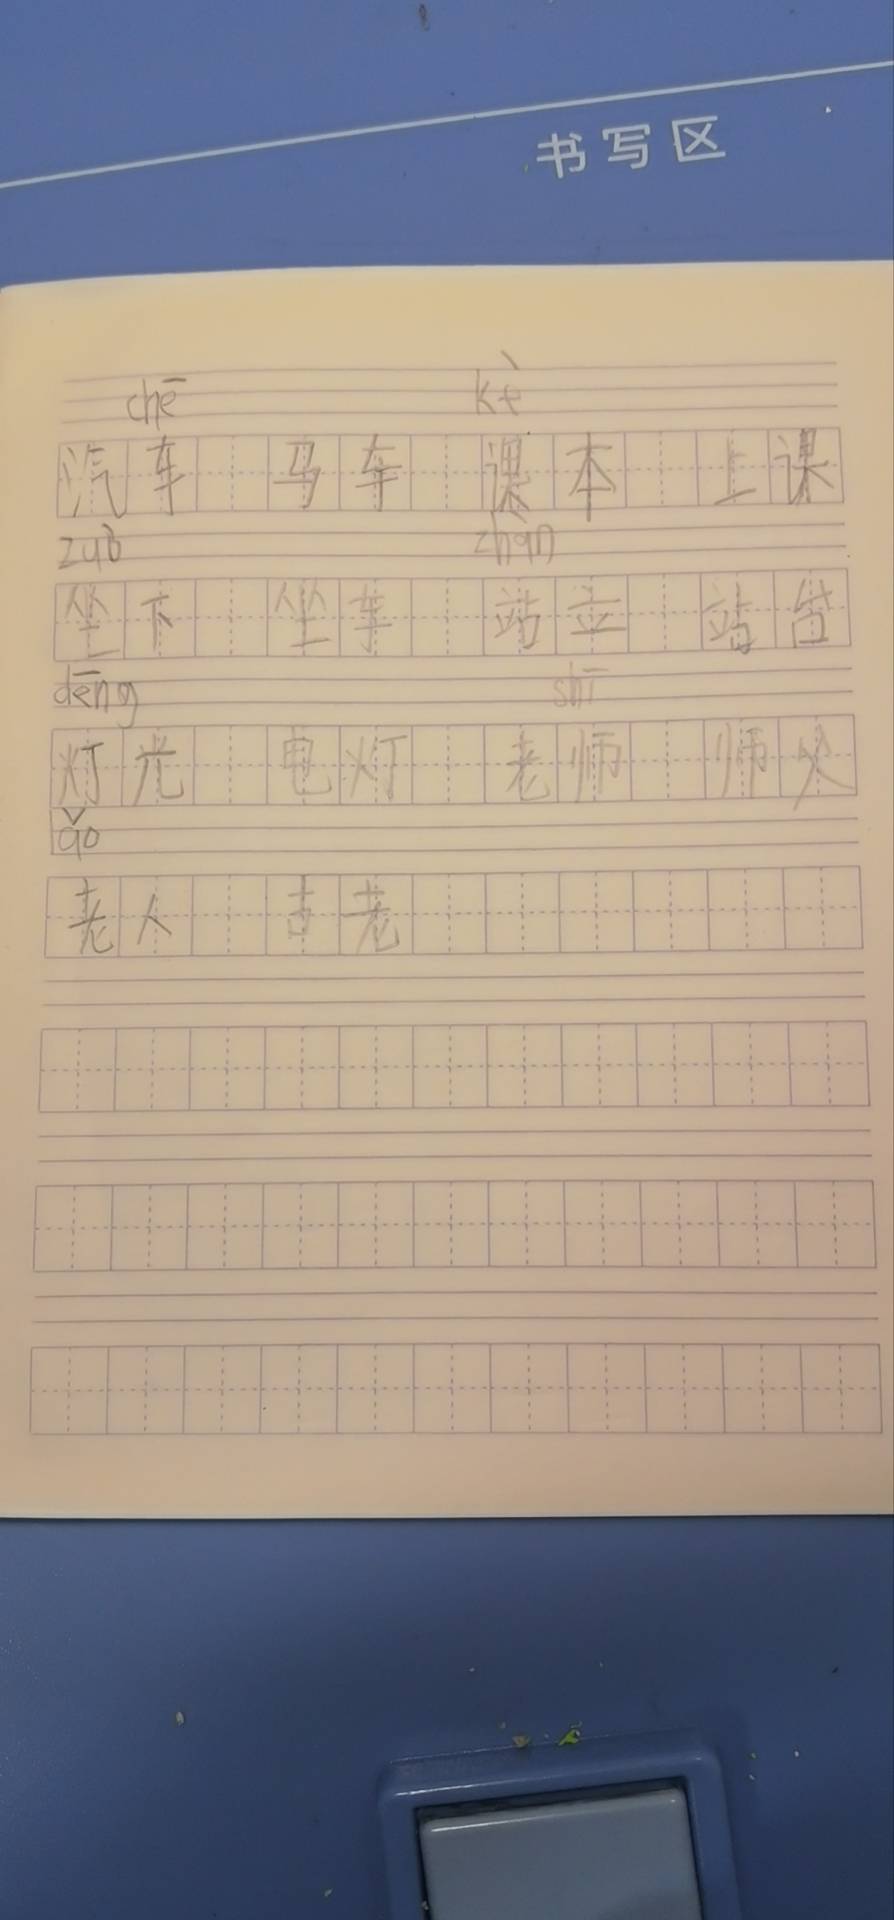 书写区
chē kè
汽车 马车 课本 上课
zuò zhàn
坐下 坐车 站立 站台
dēng shī
灯光 电灯 老师 师父
ǎo
老人 古老